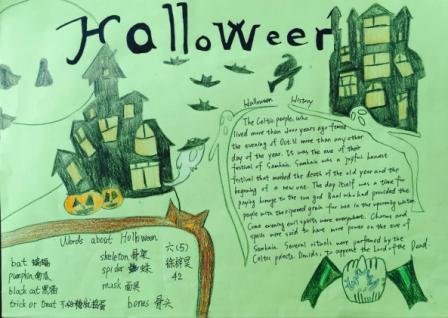 Halloween
Halloween History
The Celtic people, who
lived more than 2000 years ago feared
the evening of Oct.31 more than any other
day of the year. It was the eve of their
festival of Samhain. Samhain was a joyful harvest
festival that marked the death of the old year and the
beginning of a new one. The day itself was a time for
paying homage to the sun god Baal who had provided the
people with the ripened grain for use in the upcoming winter.
Come evening evil spirits were everywhere. Charms and
spells were said to have more power on the eve of
Samhain. Several rituals were performed by the
Celtic priests, Druids, to appease the Lord of the Dead.
Words about Halloween
bat 蝙蝠
pumpkin 南瓜
black cat 黑猫
trick or treat 不给糖就捣蛋
skeleton 骨架
spider 蜘蛛
mask 面具
bones 骨头
六(5)
42